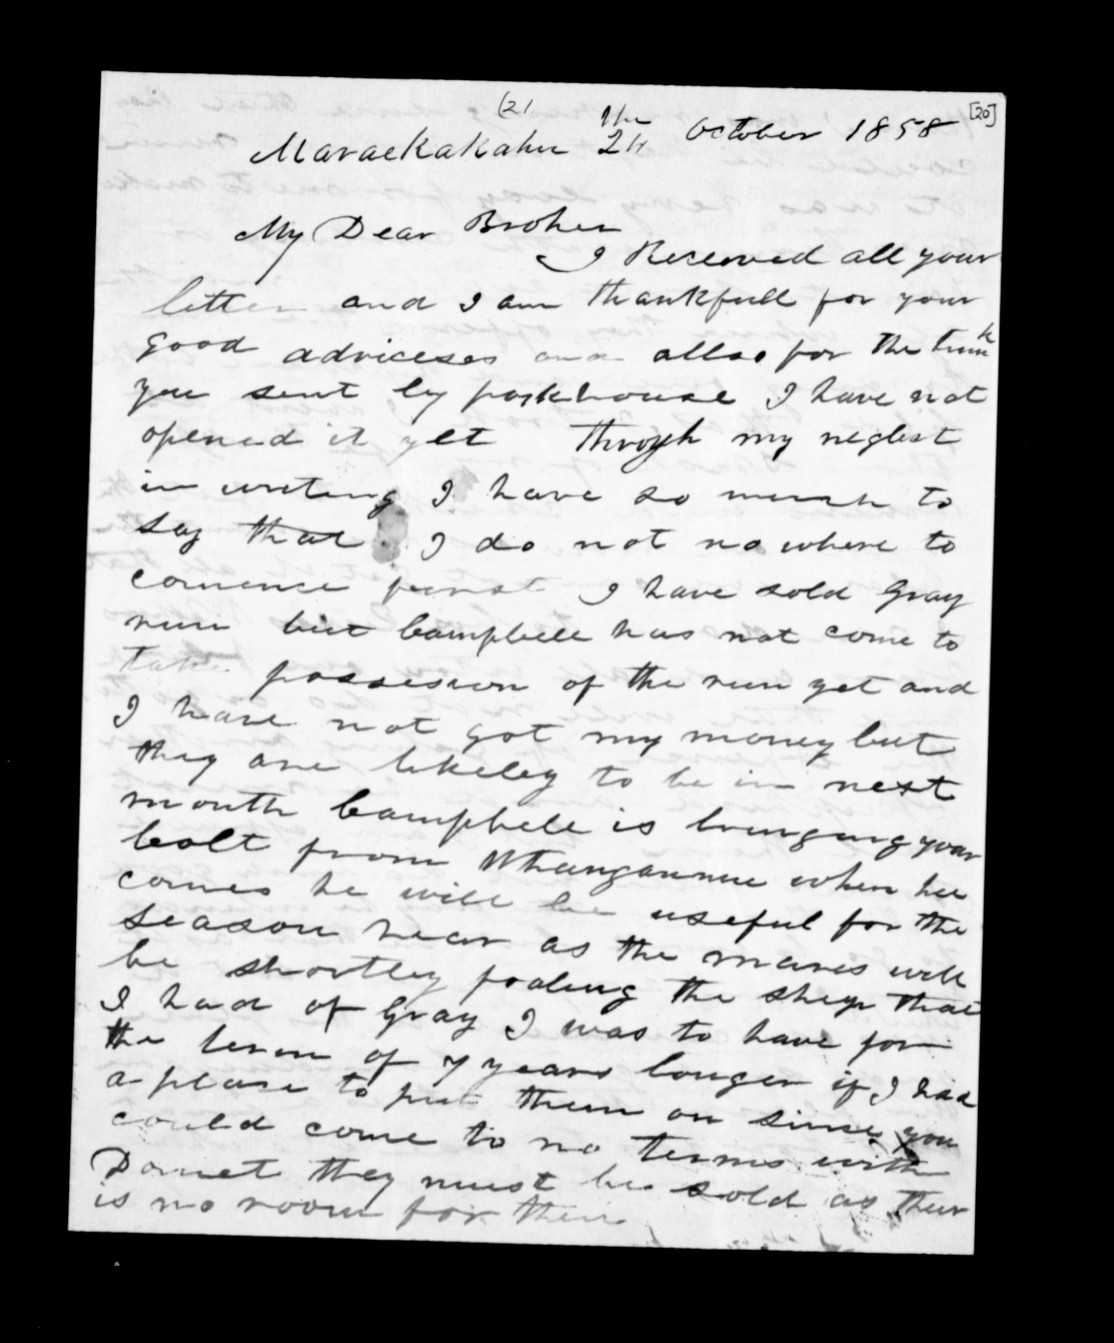 (21
[20]
Maraekakahu 24 the October 1858
My Dear Brother
I Received all your
letter and I am thankfull for your
good adviceses and allso for the trunk
you sent by parkhouse I have not
opened it yet through my neglect
in writing I have so much to
say that I do not no where to
comence furst I have sold Gray
run but Campbell has not come to
take possession of the run yet and
I have not got my money but
they are likeley to be in next
month Campbell is bringing your
Colt from Whanganue when he
comes he will be useful for the
season hear as the mares will
be shortley foaling the sheep that
I had of Gray I was to have for
the term of 7 years longer if I had
a place to put them on since you
could come to no terms with
Domet they must be sold as ther
is no room for them